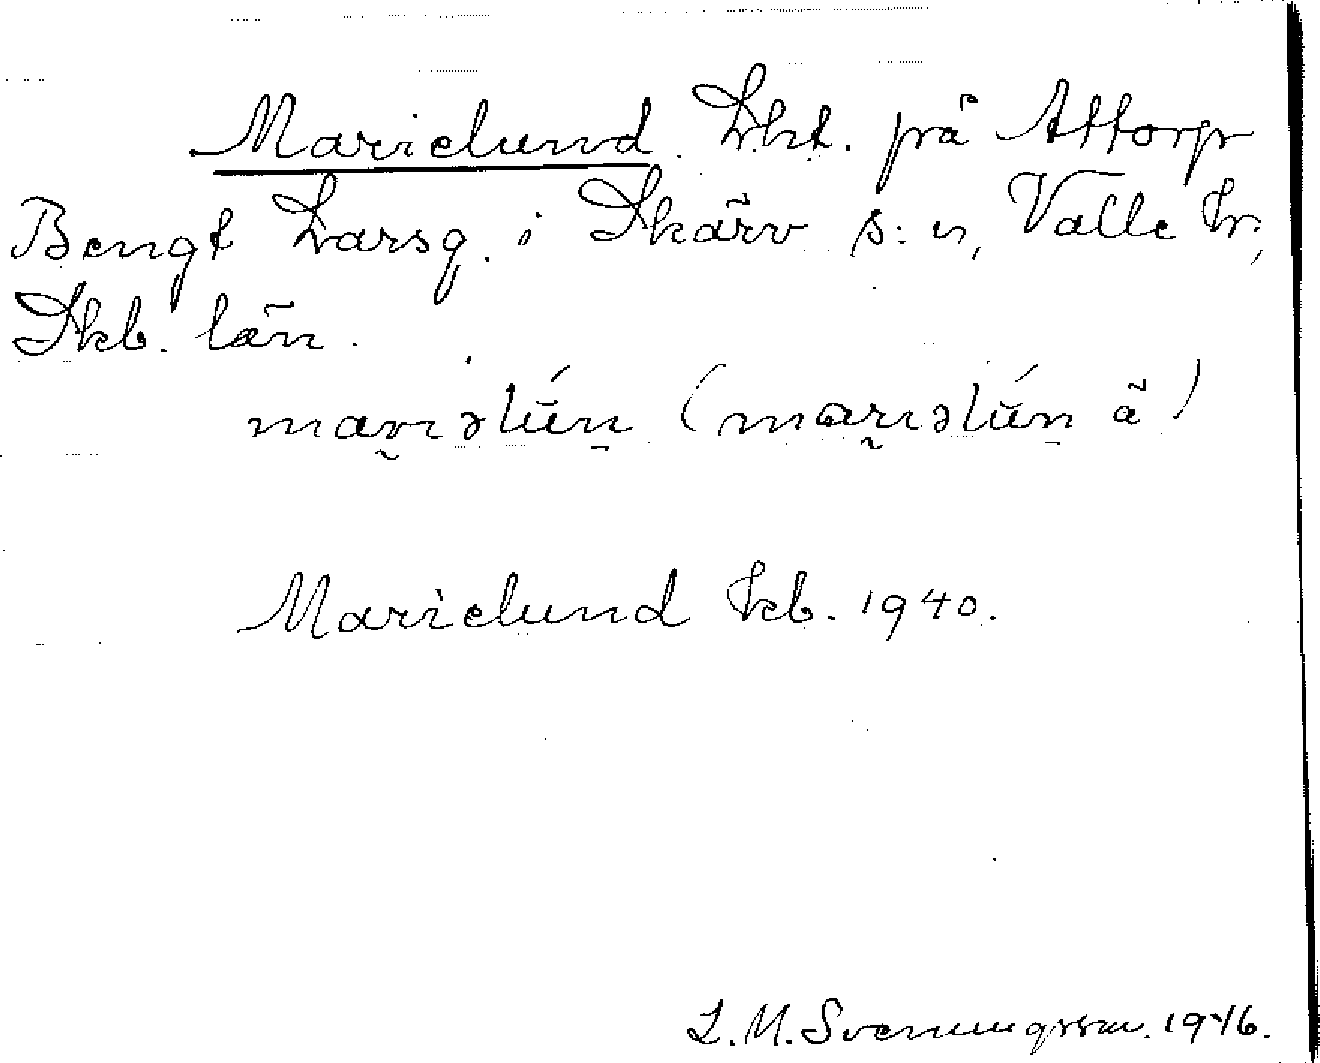 Marielund. Lht. på Attorp
Bengt Larsg. i Skärv s:n, Valle hr,
Skb. län.
mariəlún (mariəlún å)
Marielund kb. 1940.
L.M. Svenungsson. 1946.